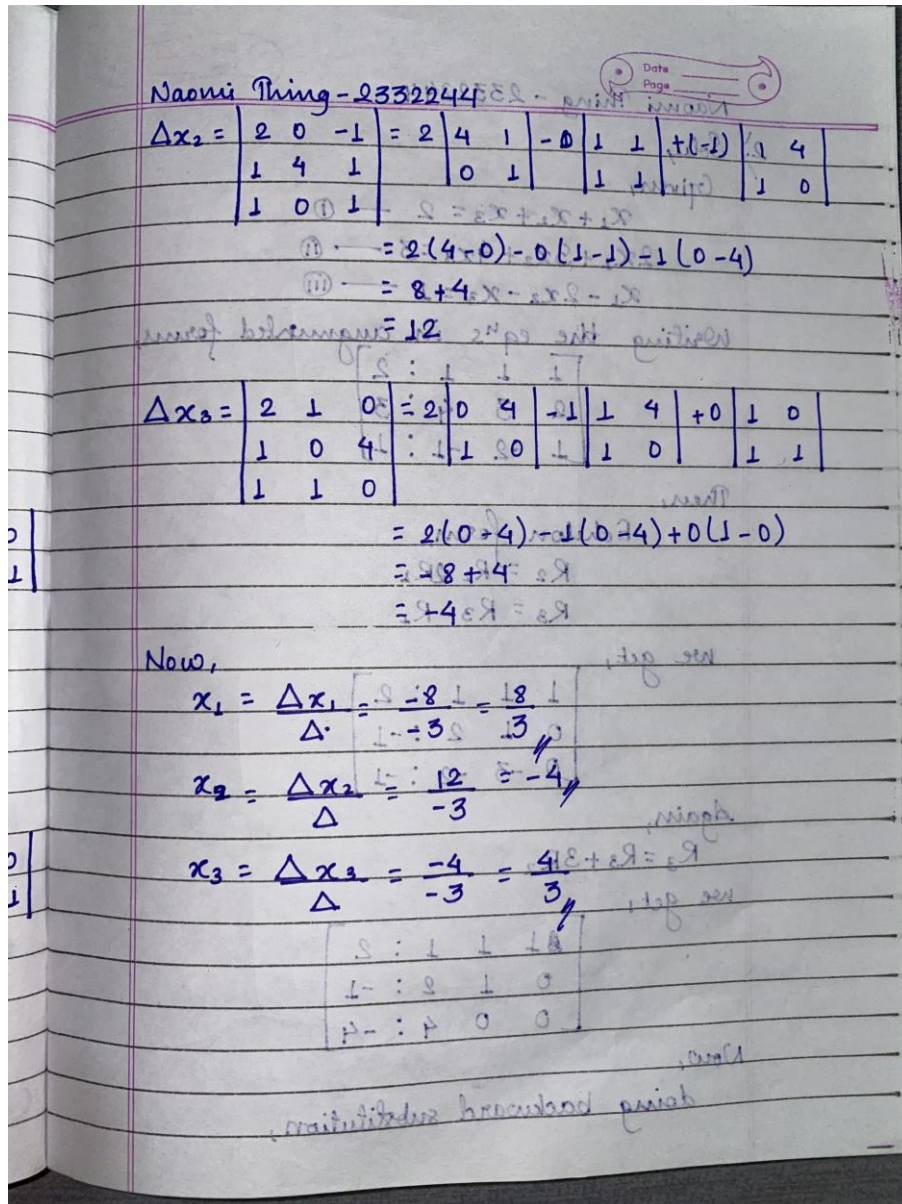 Date
Page
Naomi Thing - 2332244
Δx₂ = | 2 0 -1 | = 2 | 4 1 | - 0 | 1 1 | + (-1) | 1 4 |
| 1 4 1 | | 0 1 | | 1 1 | | 1 0 |
| 1 0 1 |
= 2(4-0) - 0(1-1) - 1(0-4)
= 8+4
= 12
Δx₃ = | 2 1 0 | = 2 | 0 4 | - 1 | 1 4 | + 0 | 1 0 |
| 1 0 4 | | 1 0 | | 1 0 | | 1 1 |
| 1 1 0 |
= 2(0-4) - 1(0-4) + 0(1-0)
= -8+4
= -4
Now,
x₁ = Δx₁/Δ = -8/-3 = 8/3
x₂ = Δx₂/Δ = 12/-3 = -4
x₃ = Δx₃/Δ = -4/-3 = 4/3